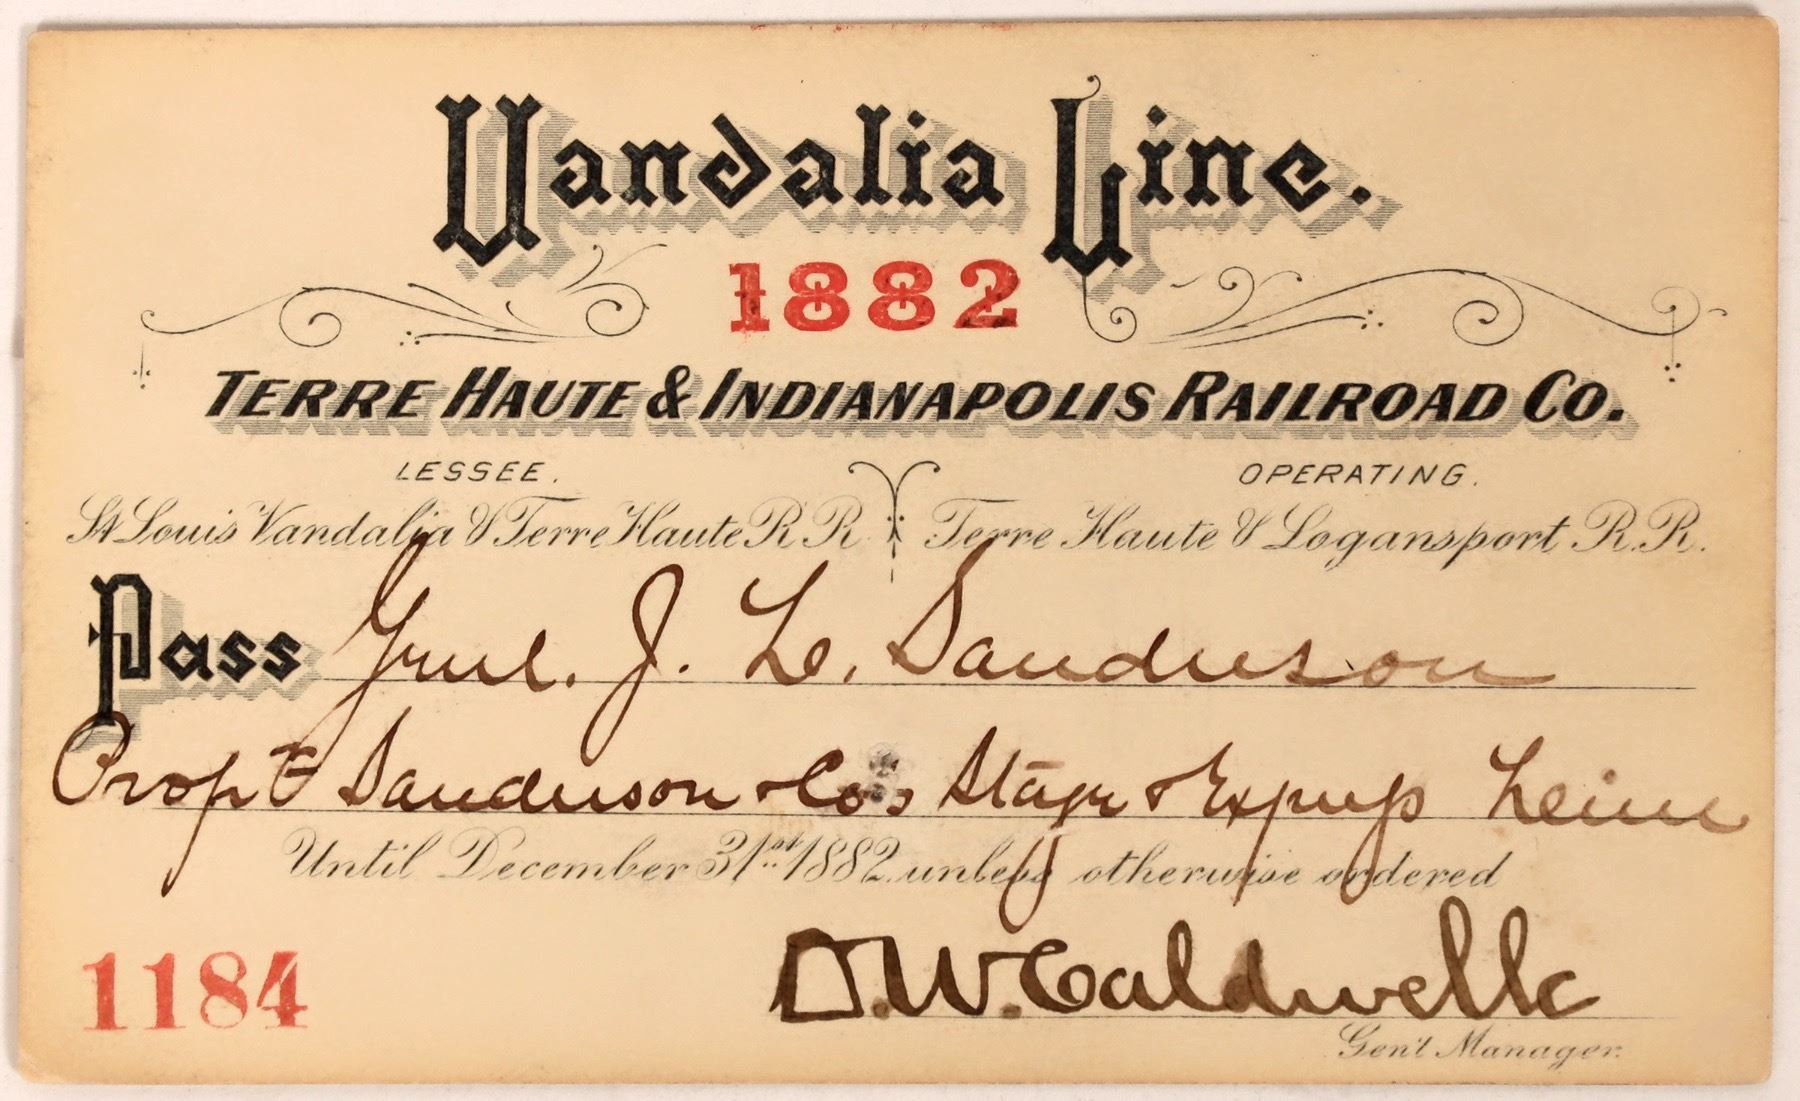 Vandalia Line.
1882
TERRE HAUTE & INDIANAPOLIS RAILROAD CO.
LESSEE. OPERATING.
St Louis Vandalia & Terre Haute R R Terre Haute & Logansport R.R.
Pass Genl. J. L. Sanderson
Propr Sanderson & Co's Stage & Express Line
Until December 31st 1882 unless otherwise ordered
1184 D.W. Caldwell
Gen'l Manager.